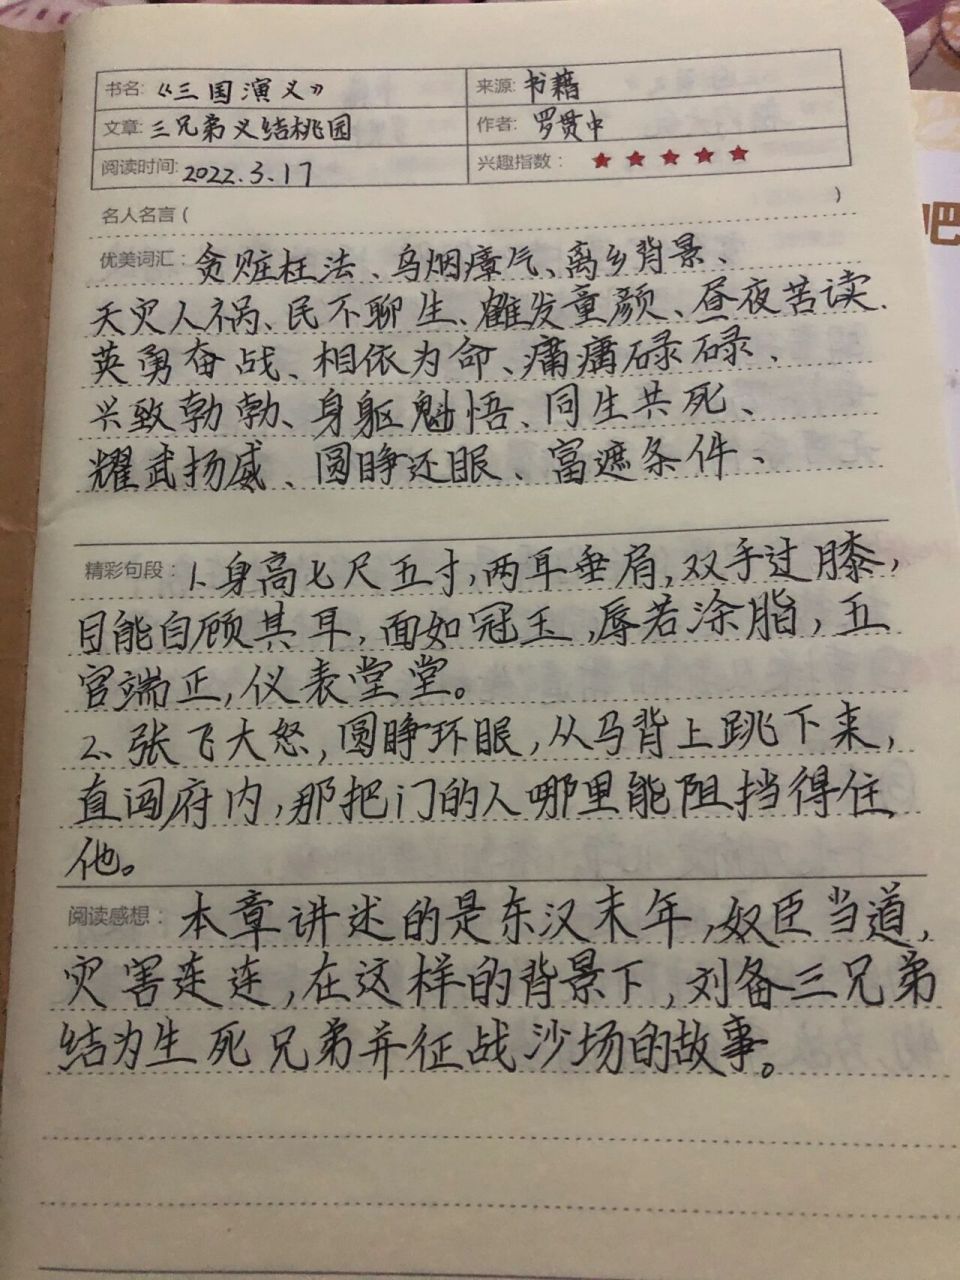 书名: 《三国演义》 来源: 书籍
文章: 三兄弟义结桃园 作者: 罗贯中
阅读时间: 2022.3.17 兴趣指数: ★★★★★
名人名言( )
优美词汇: 贪赃枉法、乌烟瘴气、离乡背景、
天灾人祸、民不聊生、鹤发童颜、昼夜苦读、
英勇奋战、相依为命、庸庸碌碌、
兴致勃勃、身躯魁悟、同生共死、
耀武扬威、圆睁还眼、富遮条件、
精彩句段: 1.身高七尺五寸,两耳垂肩,双手过膝,
目能自顾其耳,面如冠玉,唇若涂脂,五
官端正,仪表堂堂。
2.张飞大怒,圆睁环眼,从马背上跳下来,
直闯府内,那把门的人哪里能阻挡得住
他。
阅读感想: 本章讲述的是东汉末年,奴臣当道,
灾害连连,在这样的背景下,刘备三兄弟
结为生死兄弟并征战沙场的故事。
吧